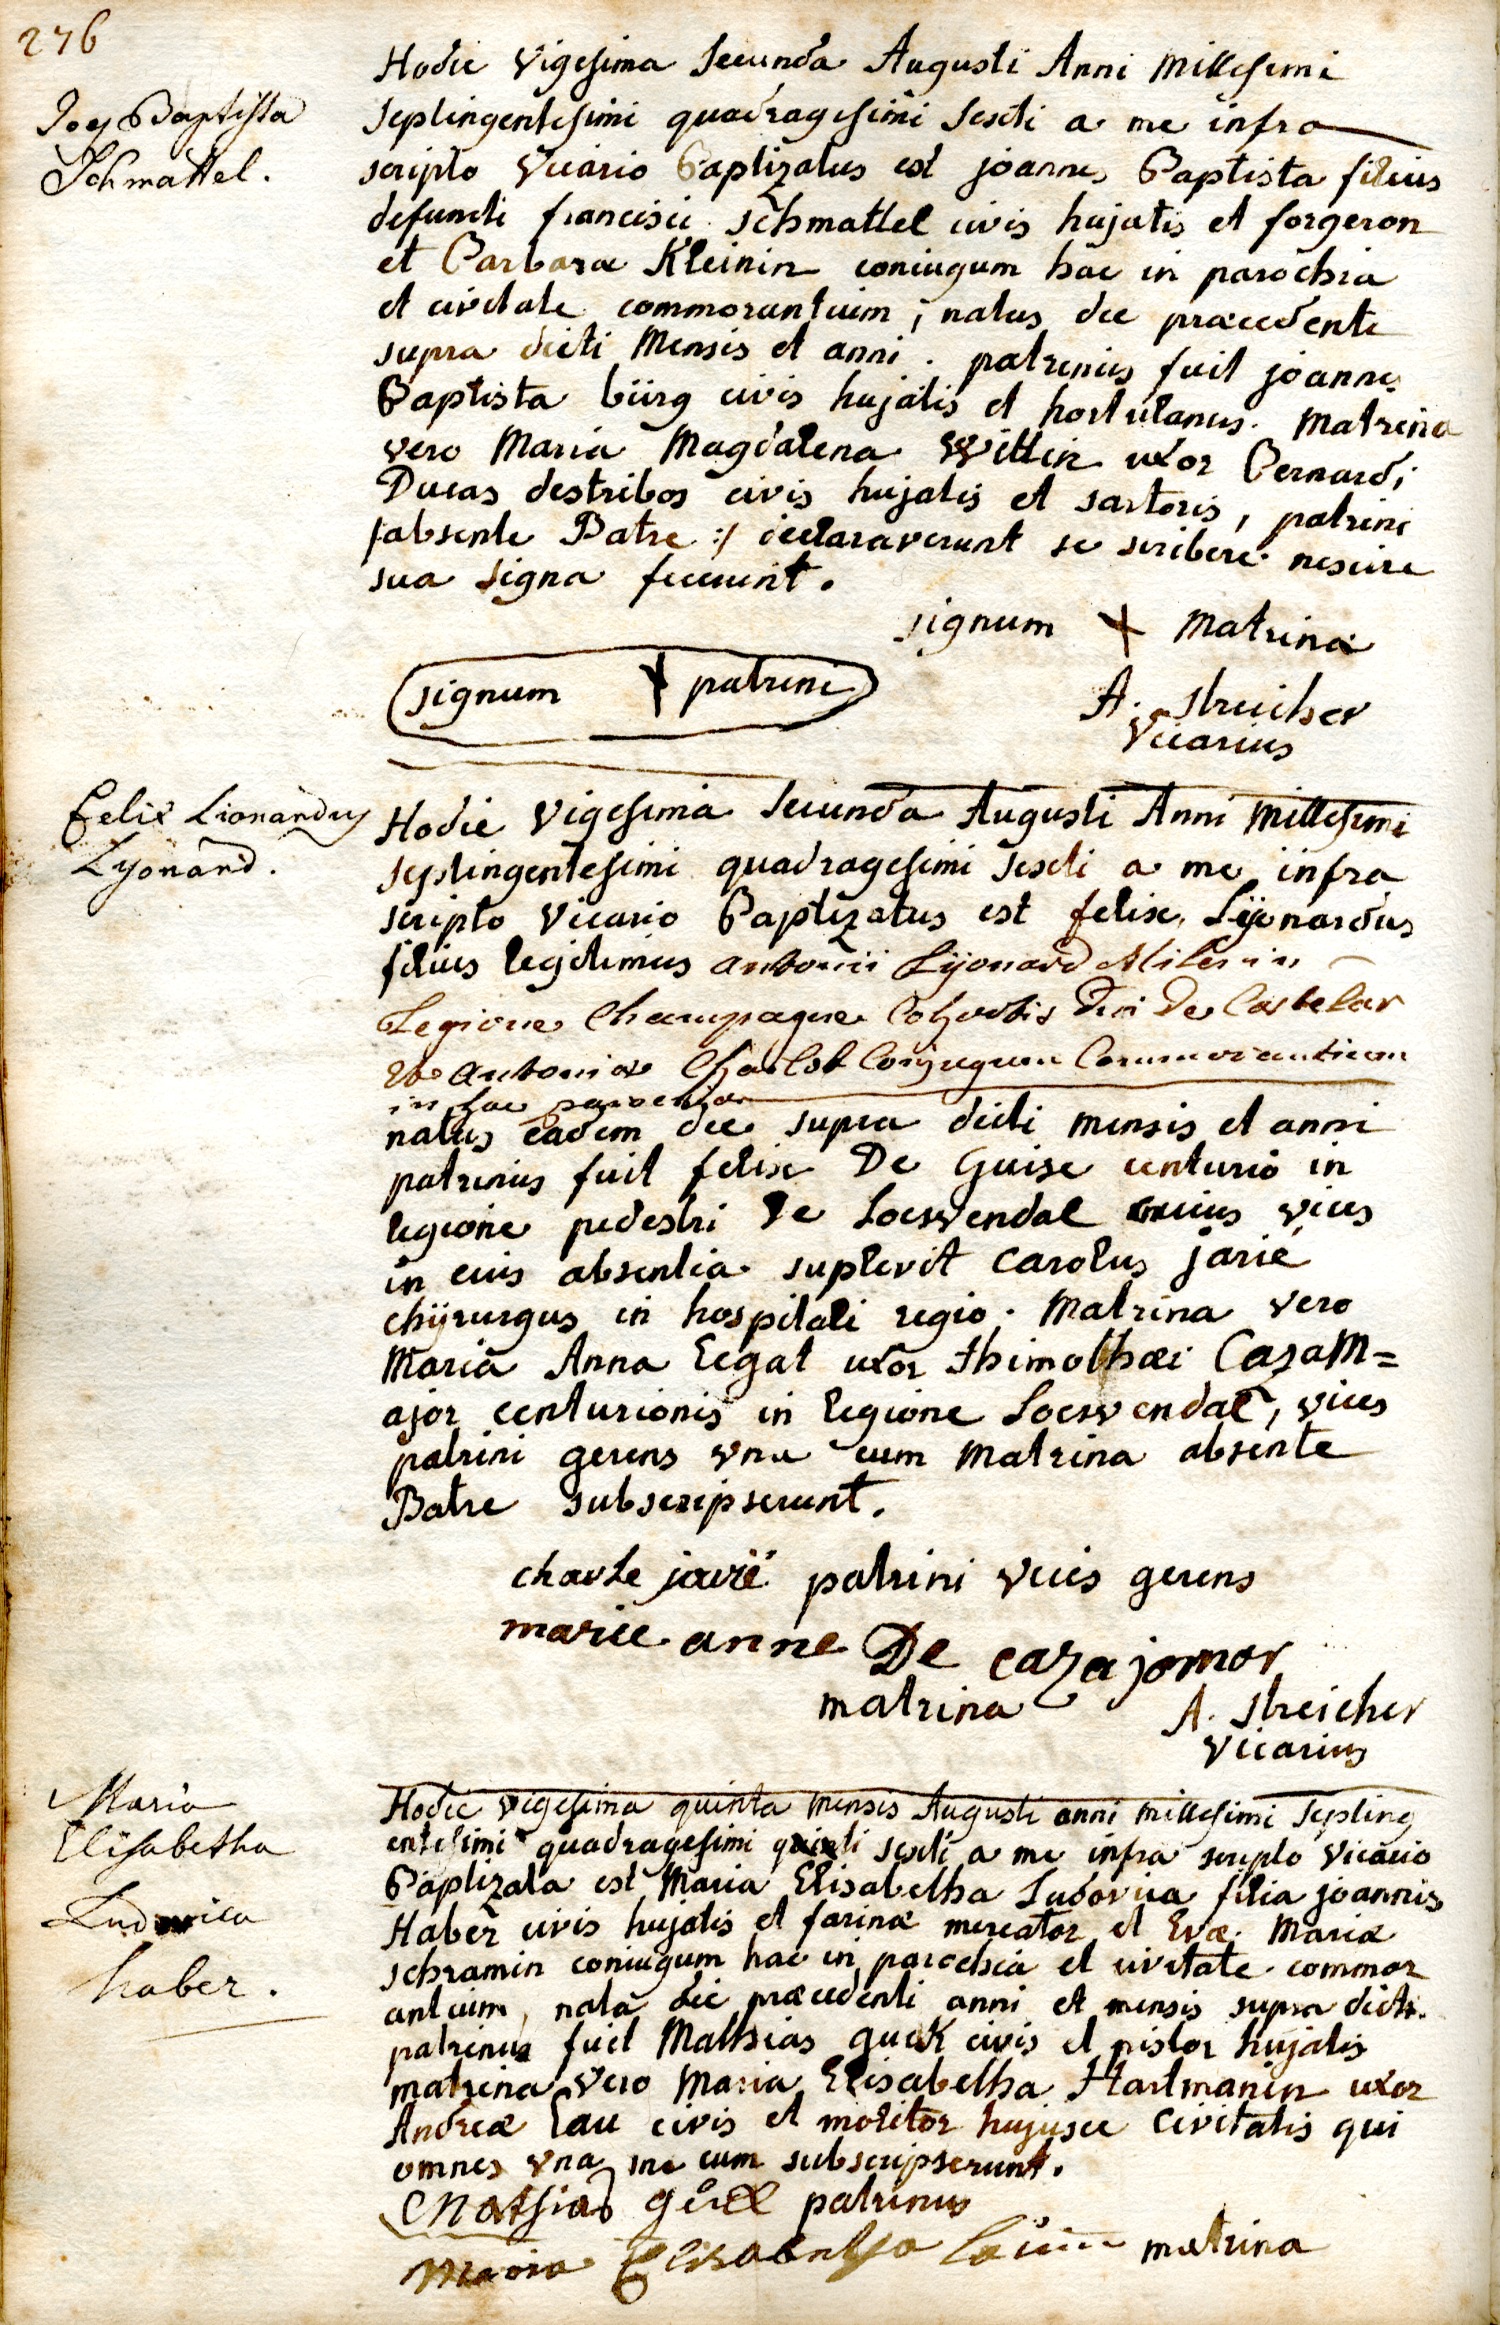 276
Hodie Vigesima Secunda Augusti Anni Millesimi
Joes Baptista
Schmattel.
septingentesimi quadragesimi Sexti a me infra
scripto Vicario Baptizatus est joannes Baptista filius
defuncti francisci Schmattel civis hujatis et forgeron
et Barbara Kleinin coniugum hac in parochia
et civitate commorantium, natus die præcedente
supra dicti Mensis et anni. patrinus fuit joannes
Baptista bürg civis hujatis et hortulanus. Matrina
vero Maria Magdalena Wittin uxor Bernardi
Ducas destribos civis hujatis et sartoris, patrini
/absente Patre :/ declaraverunt se scribere nescire
sua signa fecerunt.
signum + Matrina
signum + patrini
A. Streicher
Vicarius
Felix Lionardus
Lyonard.
Hodie Vigesima Secunda Augusti Anni Millesimi
septingentesimi quadragesimi Sexti a me infra
scripto Vicario Baptizatus est felix Lijonardus
filius legitimus antonii Lijonard Milis in
Legione Champagne Cohortis Dni De Castelar
Et antoniæ Charlot Conjugum Commorantium
in hac parochia
natus eadem die supra dicti mensis et anni
patrinus fuit felix De Guise centurio in
legione pedestri de Loewendal cuius vices
in eius absentia suplevit Carolus jarié
chijrurgus in hospitali regio. Matrina vero
Maria Anna Legat uxor thimothæi CazaM=
ajor centurionis in legione Loewendal, vices
patrini gerens vna cum Matrina absente
Patre subscripserunt.
charle jarié patrini vices gerens
marie anne De cazajomor
matrina
A. Streicher
Vicarius
Maria
Elisabetha
Ludovica
haber.
Hodie vigesima quinta Mensis Augusti anni millesimi Septing
entesimi quadragesimi quinti sexti a me infra scripto Vicario
Baptizata est Maria Elisabetha Ludovica filia joannis
Haber civis hujatis et farinæ mercator et Evæ Mariæ
schramin coniugum hac in parochia et civitate commor
antium, nata die præcedenti anni et mensis supra dicti.
patrinus fuit Mathias guck civis et pistor hujatis
matrina vero Maria Elisabetha Hartmanin uxor
Andreæ Lau civis et molitor hujusce Civitatis qui
omnes vna me cum subscripserunt.
Mathias patrinus
Maria Elisabetha matrina